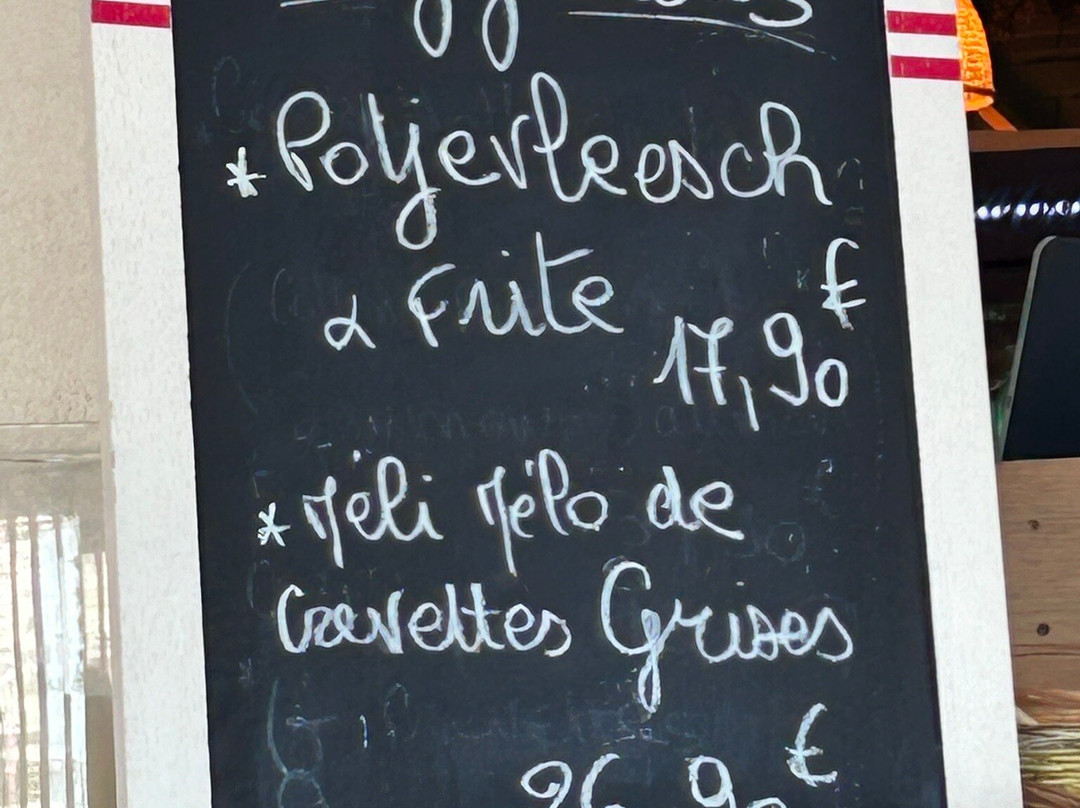 * Potjevleesch
& Frite
17,90 €
* Méli Mélo de
Crevettes Grises
€